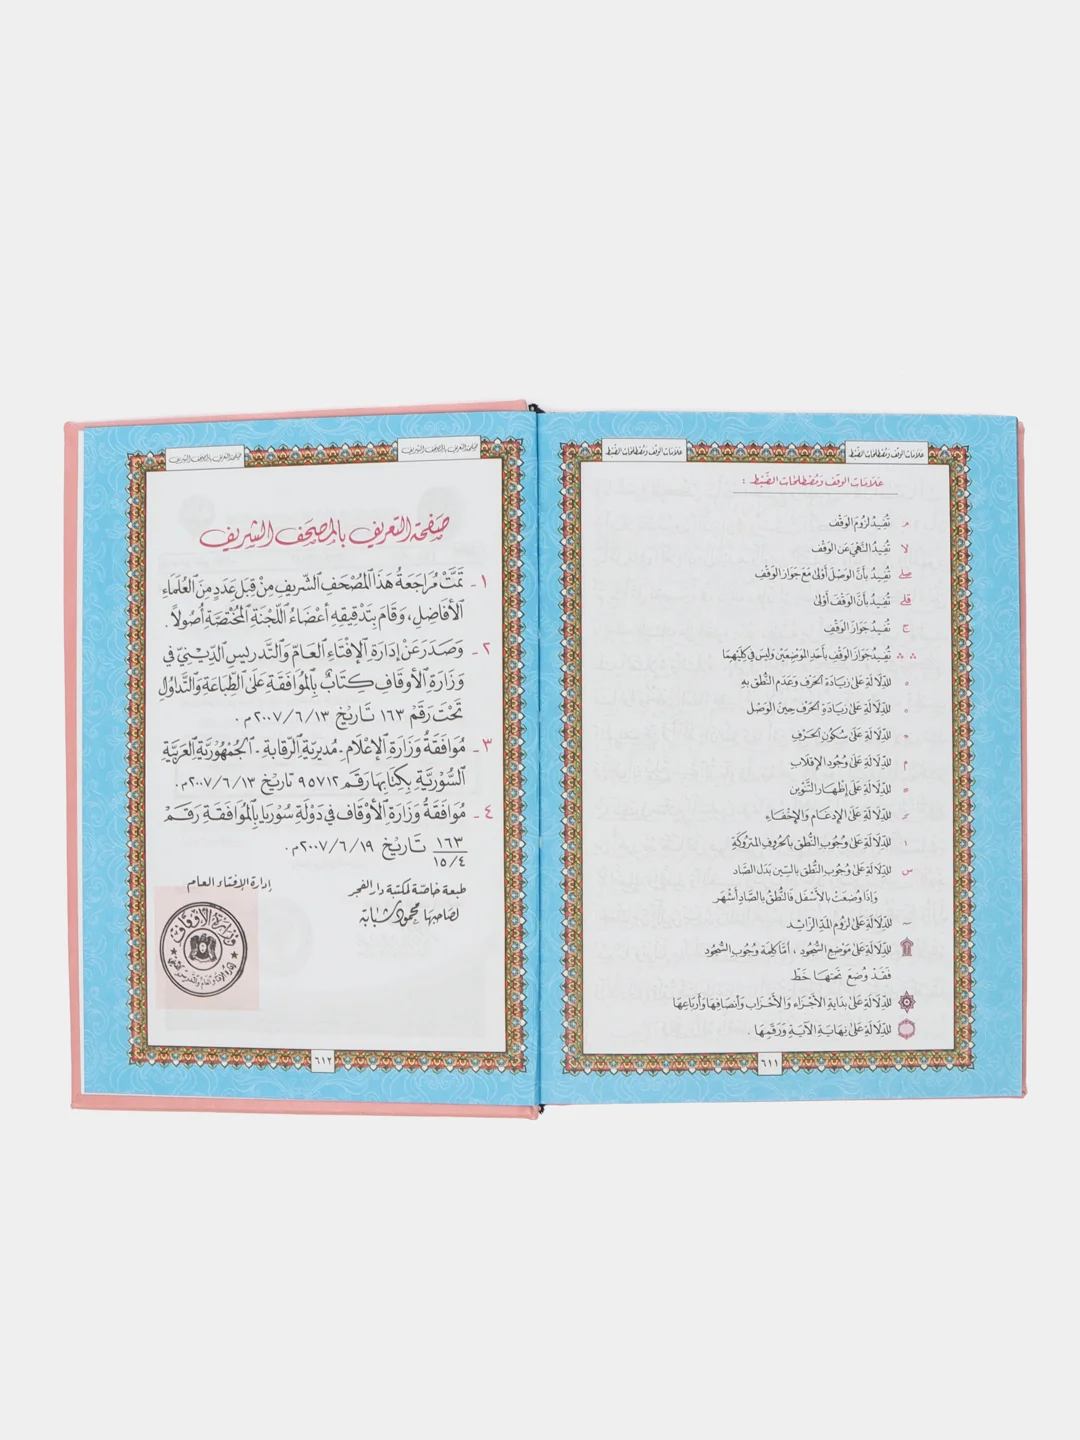 علامات الوقف ومصطلحات الضبط
علامات الوقف ومصطلحات الضبط
علامات الوقف ومصطلحات الضبط :
م تفيد لزوم الوقف
لا تفيد النهي عن الوقف
صلى تفيد بأن الوصل أولى مع جواز الوقف
قلى تفيد بأن الوقف أولى
ج تفيد جواز الوقف
∴ ∴ تفيد جواز الوقف بأحد الموضعين وليس في كليهما
للدلالة على زيادة الحرف وعدم النطق به
للدلالة على زيادة الحرف حين الوصل
للدلالة على سكون الحرف
م للدلالة على وجود الإقلاب
للدلالة على إظهار التنوين
للدلالة على الإدغام والإخفاء
ا للدلالة على وجوب النطق بالحروف المتروكة
س للدلالة على وجوب النطق بالسين بدل الصاد
وإذا وضعت بالأسفل فالنطق بالصاد أشهر
~ للدلالة على لزوم المد الزائد
للدلالة على موضع السجود ، أما كلمة وجوب السجود
فقد وضع تحتها خط
للدلالة على بداية الأجزاء والأحزاب وأنصافها وأرباعها
للدلالة على نهاية الآية ورقمها .
٦١١
صفحة التعريف بالمصحف الشريف
صفحة التعريف بالمصحف الشريف
صفحة التعريف بالمصحف الشريف
١ - تمت مراجعة هذا المصحف الشريف من قبل عدد من العلماء
الأفاضل، وقام بتدقيقه أعضاء اللجنة المختصة أصولاً .
٢ - وصدر عن إدارة الإفتاء العام والتدريس الديني في
وزارة الأوقاف كتاب بالموافقة على الطباعة والتداول
تحت رقم ١٦٣ تاريخ ٢٠٠٧/٦/١٣ م .
٣ - موافقة وزارة الإعلام - مديرية الرقابة - الجمهورية العربية
السورية بكتابها رقم ٩٥٧١٢ تاريخ ٢٠٠٧/٦/١٣ م .
٤ - موافقة وزارة الأوقاف في دولة سوريا بالموافقة رقم
١٦٣ تاريخ ٢٠٠٧/٦/١٩ م .
١٥/٤
طبعة خاصة لمكتبة دار الفجر
لصاحبها محمود شبابة
إدارة الإفتاء العام
وزارة الأوقاف
٦١٢